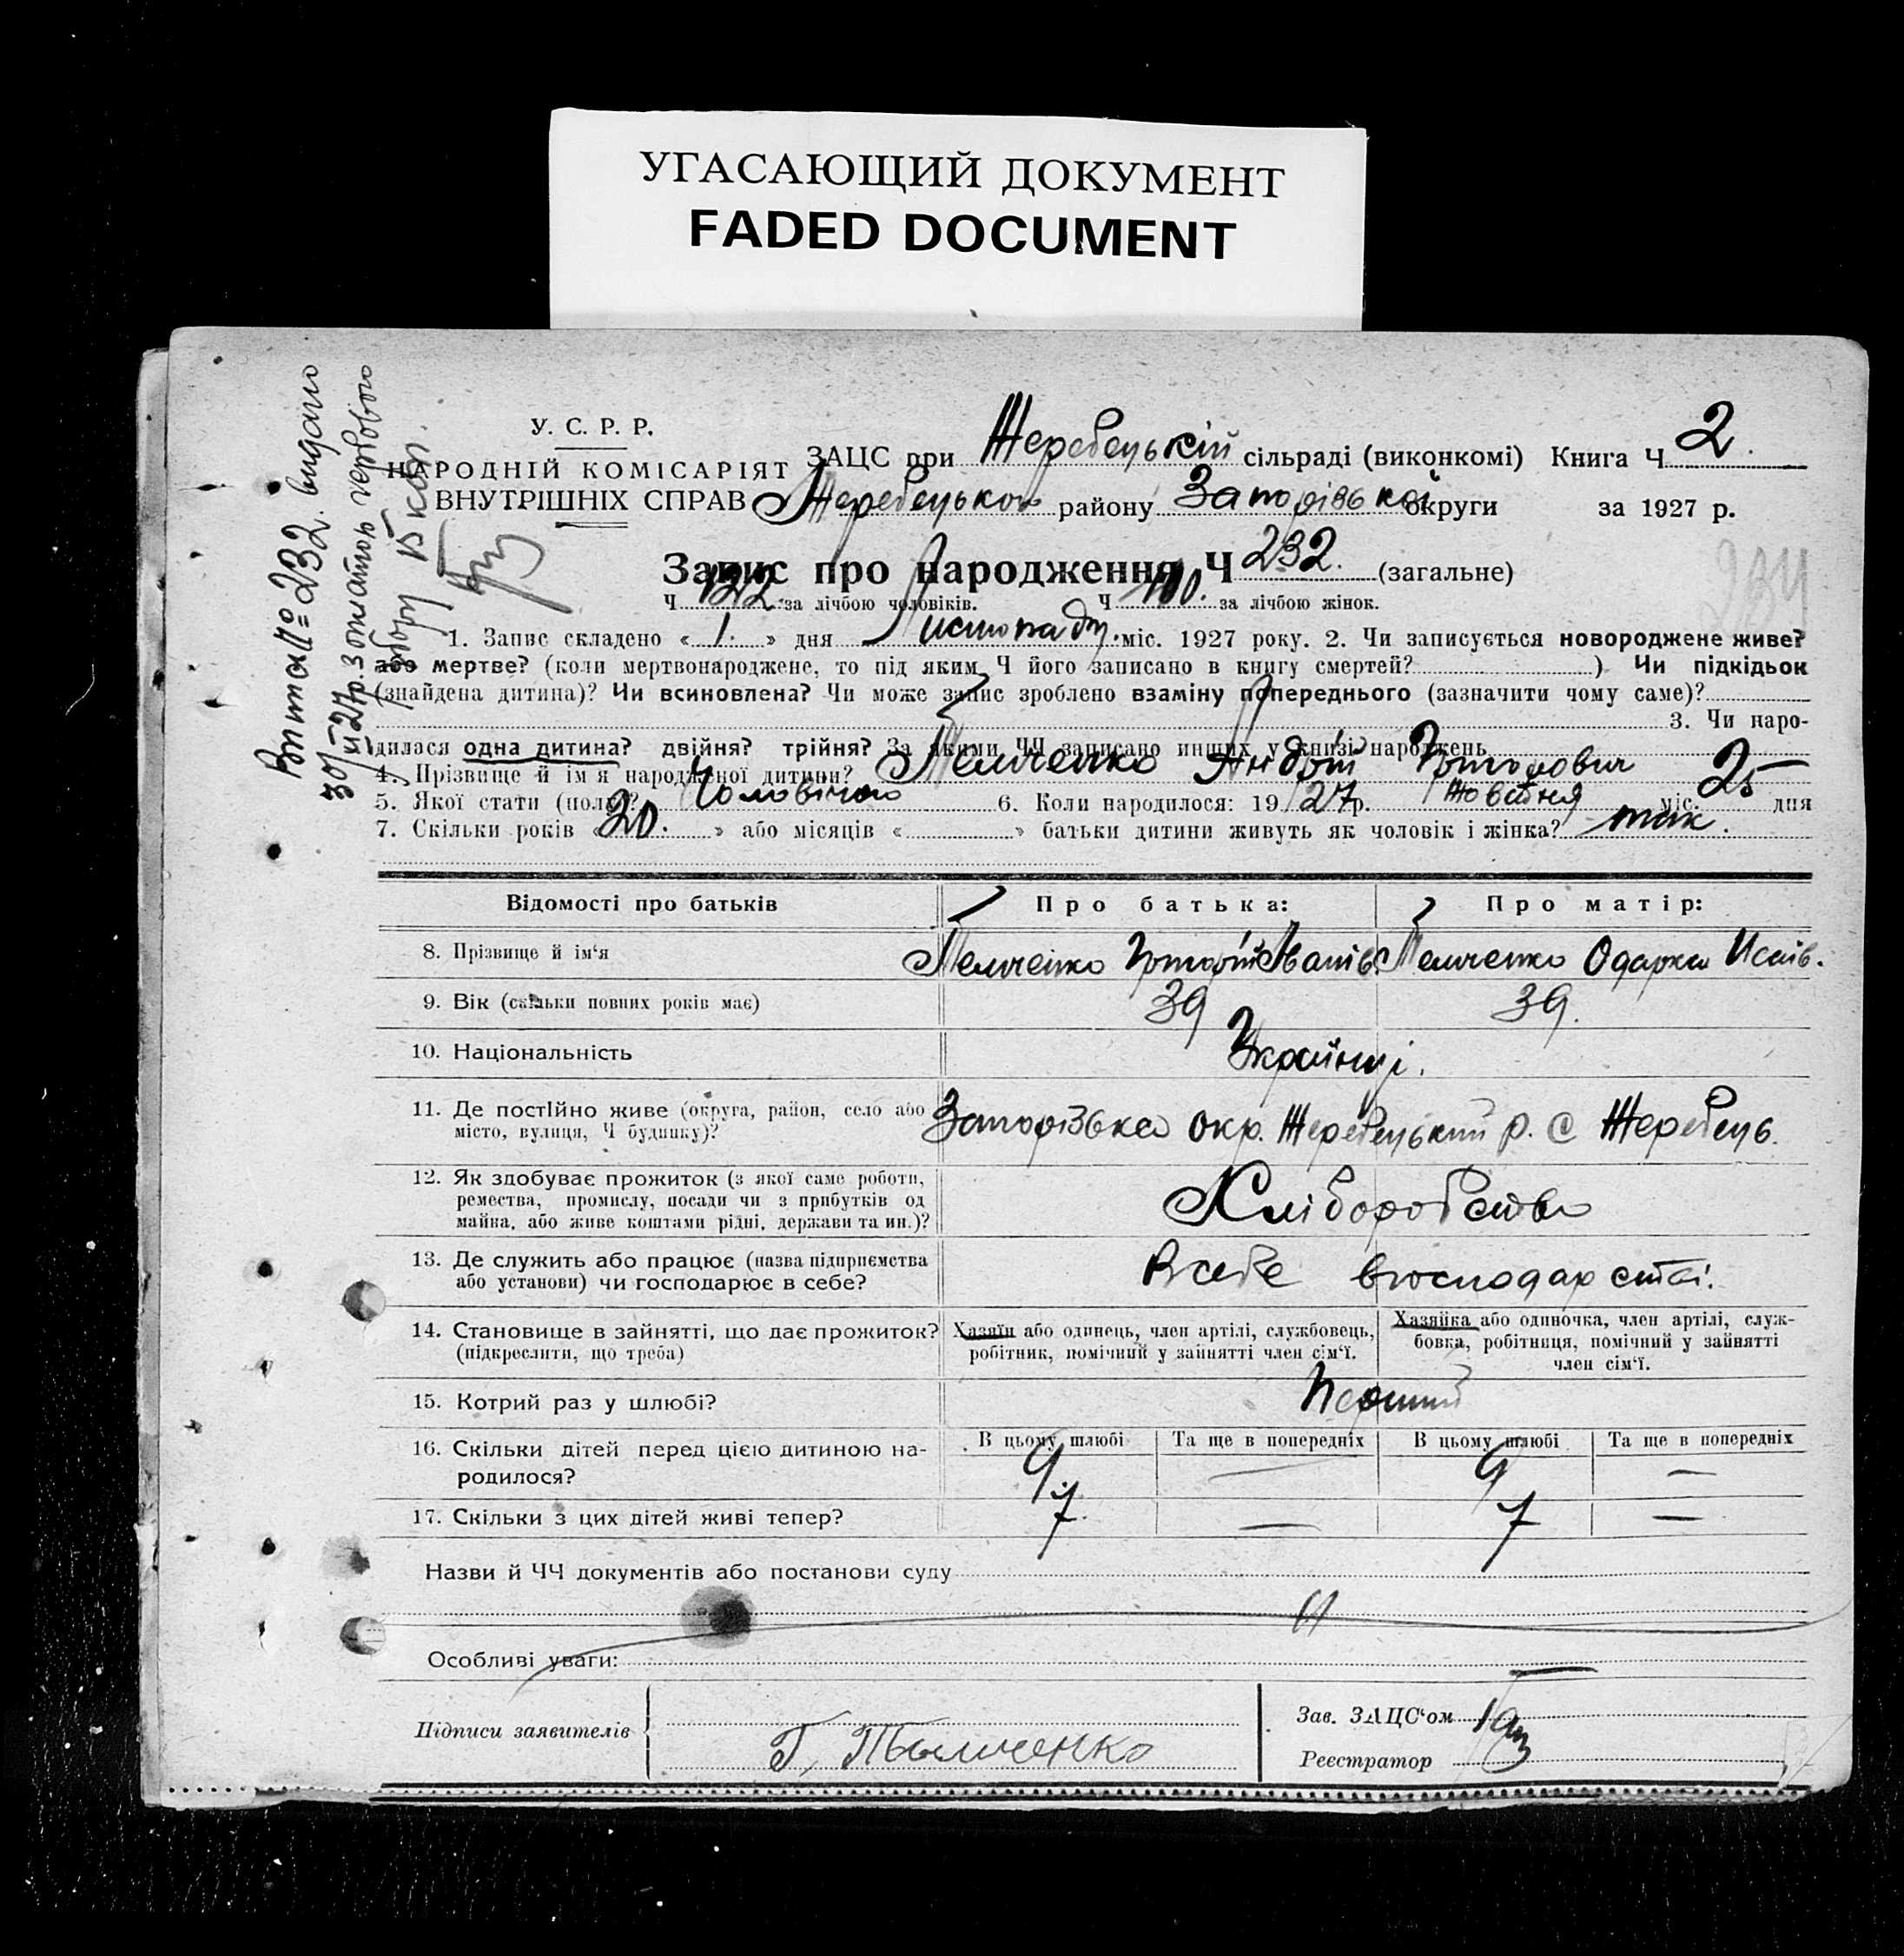 УГАСАЮЩИЙ ДОКУМЕНТ
FADED DOCUMENT
У. С. Р. Р.
НАРОДНІЙ КОМІСАРІЯТ
ВНУТРІШНІХ СПРАВ
ЗАЦС при Жеребецькій сільраді (виконкомі) Книга Ч 2.
Жеребецького району Запорізької округи за 1927 р.
Запис про народження Ч 232. (загальне)
234
Ч 132. за лічбою чоловіків. Ч 100. за лічбою жінок.
1. Запис складено « 1. » дня Листопаду. міс. 1927 року. 2. Чи записується новороджене живе?
або мертве? (коли мертвонароджене, то під яким Ч його записано в книгу смертей? ) Чи підкідьок
(знайдена дитина)? Чи всиновлена? Чи може запис зроблено взаміну попереднього (зазначити чому саме)?
3. Чи наро-
дилася одна дитина? двійня? трійня? За якими ЧЧ записано инших у книзі народжень
4. Прізвище й ім'я народженої дитини? Андрій Григорович
5. Якої стати (полу)? Чоловічої 6. Коли народилося: 1927 р. Жовтня міс. 25 дня
7. Скільки років « 20. » або місяців « » батьки дитини живуть як чоловік і жінка? так.
Відомості про батьків Про батька: Про матір:
8. Прізвище й ім'я Григорій Іванів. Одарка Исаїв.
9. Вік (скільки повних років має) 39 39.
10. Національність Українці.
11. Де постійно живе (округа, район, село або
місто, вулиця, Ч будинку)? Запорізька окр. Жеребецький р. с Жеребець.
12. Як здобуває прожиток (з якої саме роботи,
ремества, промислу, посади чи з прибутків од
майна, або живе коштами рідні, держави та ин.)? Хліборобство
13. Де служить або працює (назва підприємства
або установи) чи господарює в себе? В себе в господарстві.
14. Становище в зайнятті, що дає прожиток?
(підкреслити, що треба)
Хазяїн або одинець, член артілі, службовець,
робітник, помічний у зайнятті член сім'ї.
Хазяйка або одиночка, член артілі, служ-
бовка, робітниця, помічний у зайнятті
член сім'ї.
15. Котрий раз у шлюбі? Перший
16. Скільки дітей перед цією дитиною на-
родилося?
В цьому шлюбі Та ще в попередніх В цьому шлюбі Та ще в попередніх
9. — 9 —
17. Скільки з цих дітей живі тепер? 7. — 7 —
Назви й ЧЧ документів або постанови суду
Особливі уваги:
Підписи заявителів
Г.
Зав. ЗАЦС'ом
Реєстратор
Витяг № 232. видано
30/XI 27 р. з оплатою гербового
збору 15 коп.